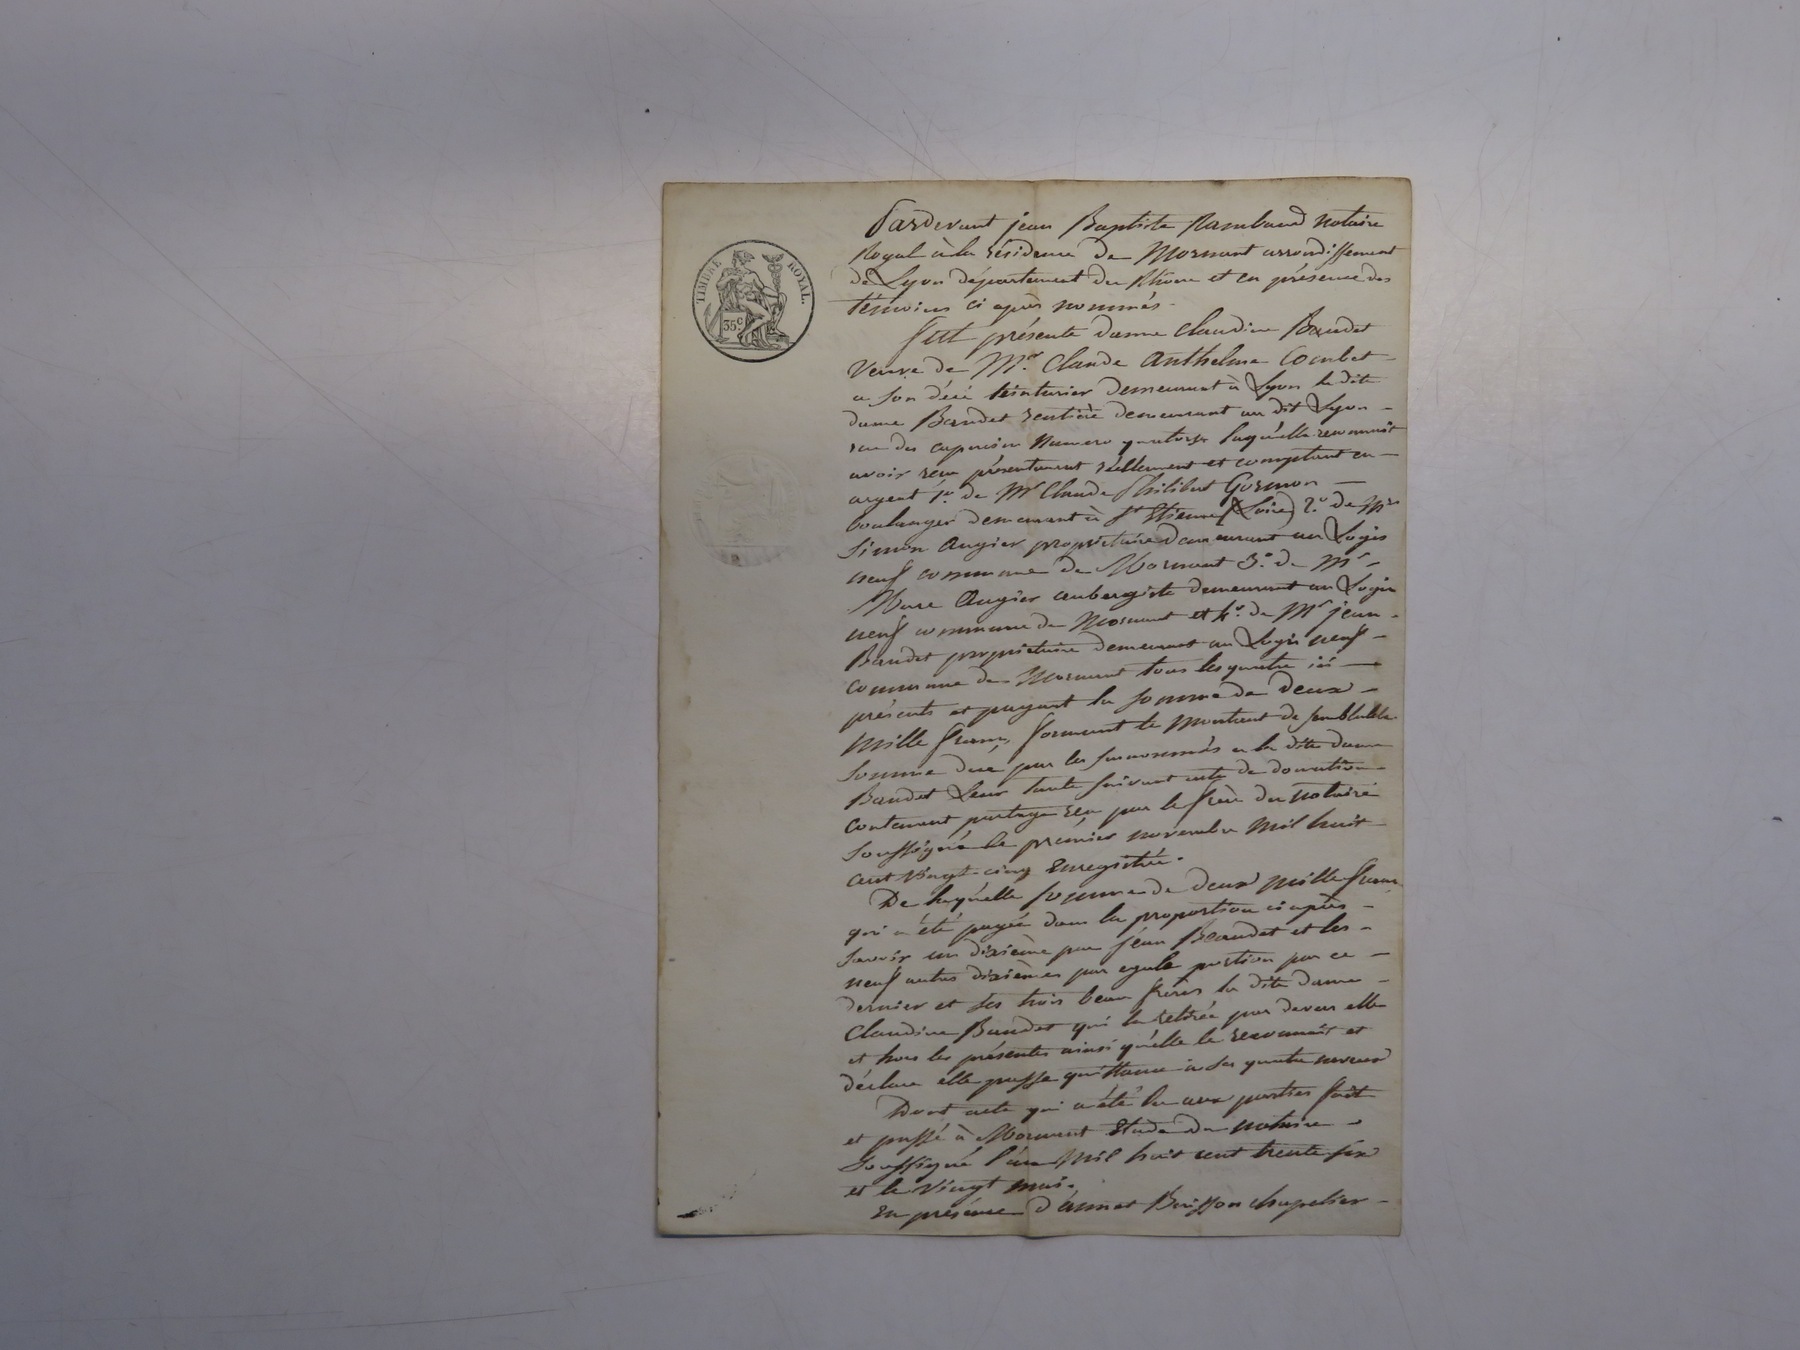 TIMBRE ROYAL.
35 c
Pardevant jean Baptiste Rambaud notaire
Royal à la résidence de Mornant arrondissement
de Lyon département du Rhône et en présence des
témoins ci après nommés.
Fut présente dame Claudine Baudet
Veuve de Mr. Claude Anthelme Combet
a son décé teinturier demeurant à Lyon la dite
dame Baudet rentière demeurant au dit Lyon
rue des capucins Numero quatorze laquelle reconnait
avoir reçu présentement réellement et comptant en
argent 1o. de Mr Claude Philibert Gormon
boulanger demeurant à St Etienne (Loire) 2o. de Mr
Simon Augier propriétaire demeurant au Logis
neuf commune de Mornant 3o. de Mr
Marc Augier aubergiste demeurant au Logis
neuf commune de Mornant et 4o. de Mr jean
Baudet propriétaire demeurant au Logis neuf
commune de Mornant tous les quatre ici
présents et payant la somme de deux
Mille francs, formant le Montant de semblable
somme due par les susnommés a la dite dame
Baudet Leur tante suivant acte de donation
contenant partage reçu par le frère du notaire
soussigné le premier novembre Mil huit
cent vingt-cinq Enregistré.
De laquelle somme de deux Mille francs
qui a été payée dans la proportion ci après
savoir un dixième par jean Baudet et les
neuf autres dixièmes par egale portion par ce
dernier et ses trois beau frères la dite dame
Claudine Baudet qui la retirée par devers elle
et hors les présentes ainsi qu'elle le reconnait et
déclare elle passe quittance à ses quatre neveux
Dont acte qui a été lu aux parties fait
et passé à Mornant Etude du notaire
soussigné l'an Mil huit cent trente six
et le vingt mai.
En présence d'annet Buisson chapelier